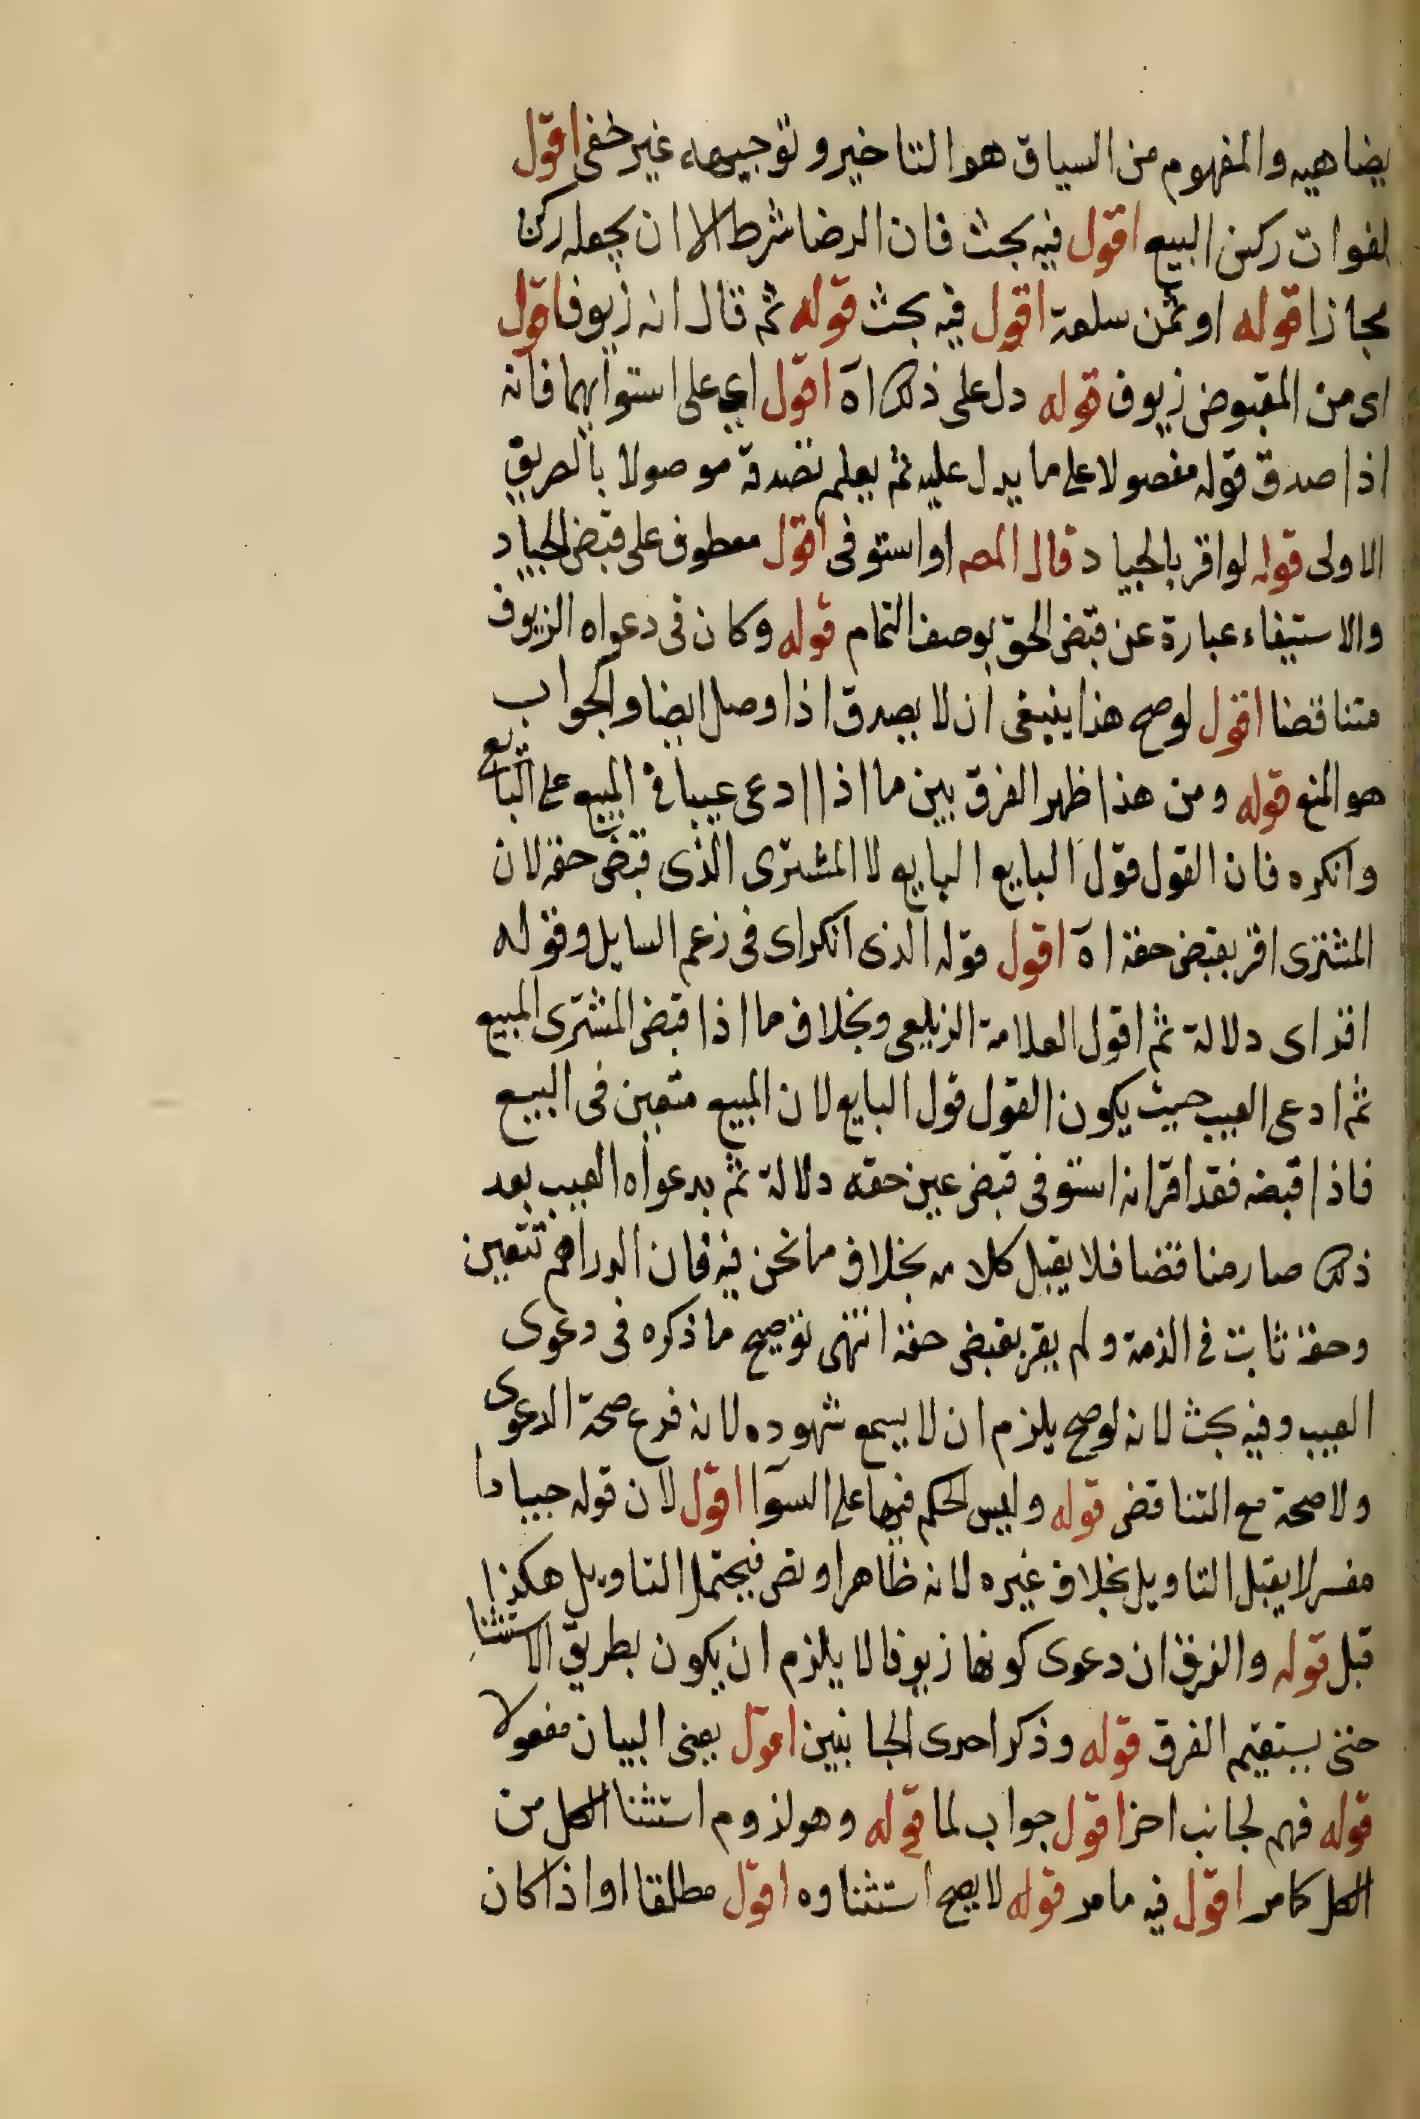 يضاهيه والمفهوم من السياق هو التاخير وتوجيهه غير خفى اقول
لفوات ركن البيع اقول فيه بحث فان الرضا شرط الا ان يجعله ركن
مجازا قوله او ثمن سلعة اقول فيه بحث قوله ثم قال انه زيوف اقول
اى من المقبوض زيوف قوله دل على ذلك اه اقول اى على استوايهما فانه
اذا صدق قوله مفصولا على ما يدل عليه ثم يعلم تصدقه موصولا بالطريق
الاولى قوله لو اقر بالجياد قال المص او استوفى اقول معطوف على قبض الجياد
والاستيفاء عبارة عن قبض الحق بوصف التمام قوله وكان فى دعواه الزيوف
متناقضا اقول لو صح هذا ينبغى ان لا يصدق اذا وصل ايضا والجواب
هو المنع قوله ومن هذا ظهر الفرق بين ما اذا ادعى عيبا فى المبيع على البايع
وانكره فان القول قول البايع البايع لا المشترى الذى قبض حقه لان
المشترى اقر بقبض حقه اه اقول قوله الذى انكر اى فى زعم السايل وقوله
اقر اى دلالة ثم اقول العلامة الزيلعى وبخلاف ما اذا قبض المشترى المبيع
ثم ادعى العيب حيث يكون القول قول البايع لان المبيع متعين فى البيع
فاذا قبضه فقد اقر انه استوفى قبض عين حقه دلالة ثم بدعواه العيب بعد
ذلك صار مناقضا فلا يقبل كلامه بخلاف ما نحن فيه فان الدراهم تتعين
وحقه ثابت فى الذمة ولم يقر بقبض حقه انتهى توضيح ما ذكره فى دعوى
العيب وفيه بحث لانه لو صح يلزم ان لا يسمع شهوده لانه فرع صحة الدعوى
ولا صحة مع التناقض قوله وليس الحكم فيها على السوا اقول لان قوله جيادا
مفسر لا يقبل التاويل بخلاف غيره لانه ظاهر او نص فيحتمل التاويل هكذا
قبل قوله والفرق ان دعوى كونها زيوفا لا يلزم ان يكون بطريق الاستثنا
حتى يستقيم الفرق قوله وذكر احدى الجانبين اقول يعنى البيان مفعولا
قوله فهم لجانب اخر اقول جواب لما قوله وهو لزوم استثنا الكل من
الكل كما مر اقول فيه ما مر قوله لا يصح استثناوه اقول مطلقا او اذا كان